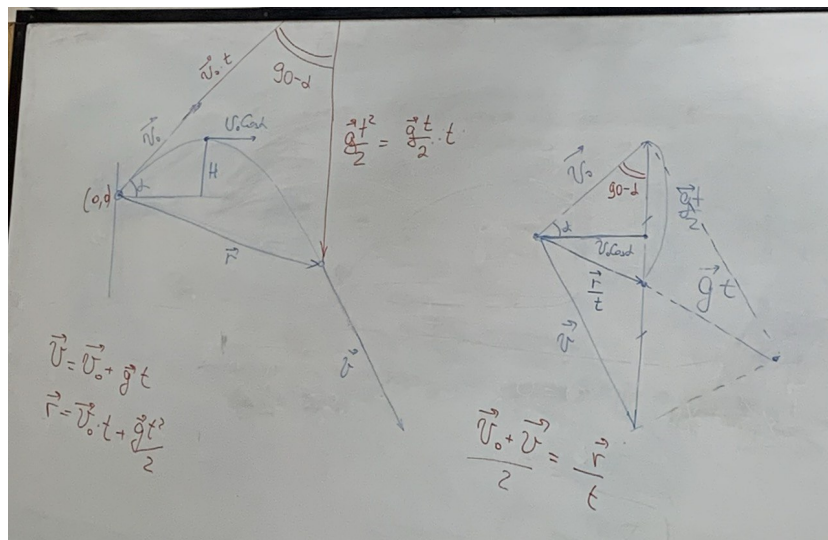 v⃗₀·t
90-α
v⃗₀
v₀cosα
g⃗t²/2 = g⃗t/2 · t
H
α
r⃗
v⃗
v⃗ = v⃗₀ + g⃗t
r⃗ = v⃗₀·t + g⃗t²/2
v⃗₀
90-α
g⃗t/2
α
v₀cosα
r⃗/t
g⃗t
v⃗
(v⃗₀ + v⃗)/2 = r⃗/t